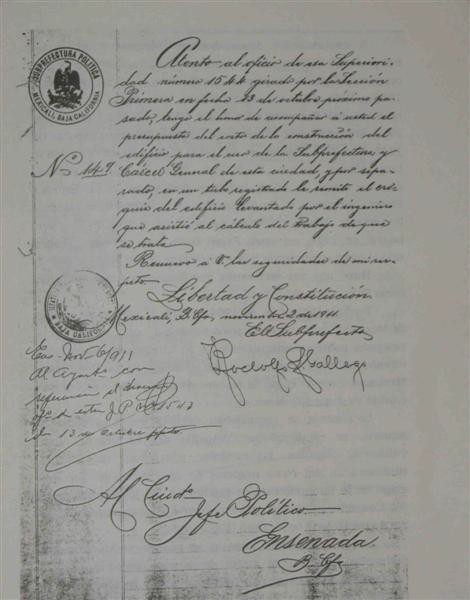 SUBPREFECTURA POLITICA
MEXICALI, BAJA CALIFORNIA
Atento al oficio de esa Superiori-
dad número 1544 girado por la Sección
Primera en fecha 23 de octubre próximo pa-
sado, tengo el honor de acompañar a usted el
presupuesto del costo de la construcción del
edificio para el uso de la Subprefectura y
Nº 149. Cárcel General de esta ciudad, y por sepa-
rado, en un tubo registrado le remito el cró-
quis del edificio levantado por el ingeniero
que asistió al cálculo del trabajo de que
se trata.
Renuevo a V. las seguridades de mi res-
peto.
Libertad y Constitución.
Mexicali, B. Cfa, noviembre 2 de 1911.
El Subprefecto,
Rodolfo L. Gallego
BAJA CALIFORNIA
Nov. 6/911
Al con
referencia al
de esta J.P. 1543
13 de octubre ppdo
Al Ciud.
Jefe Político
Ensenada.
B. Cfa